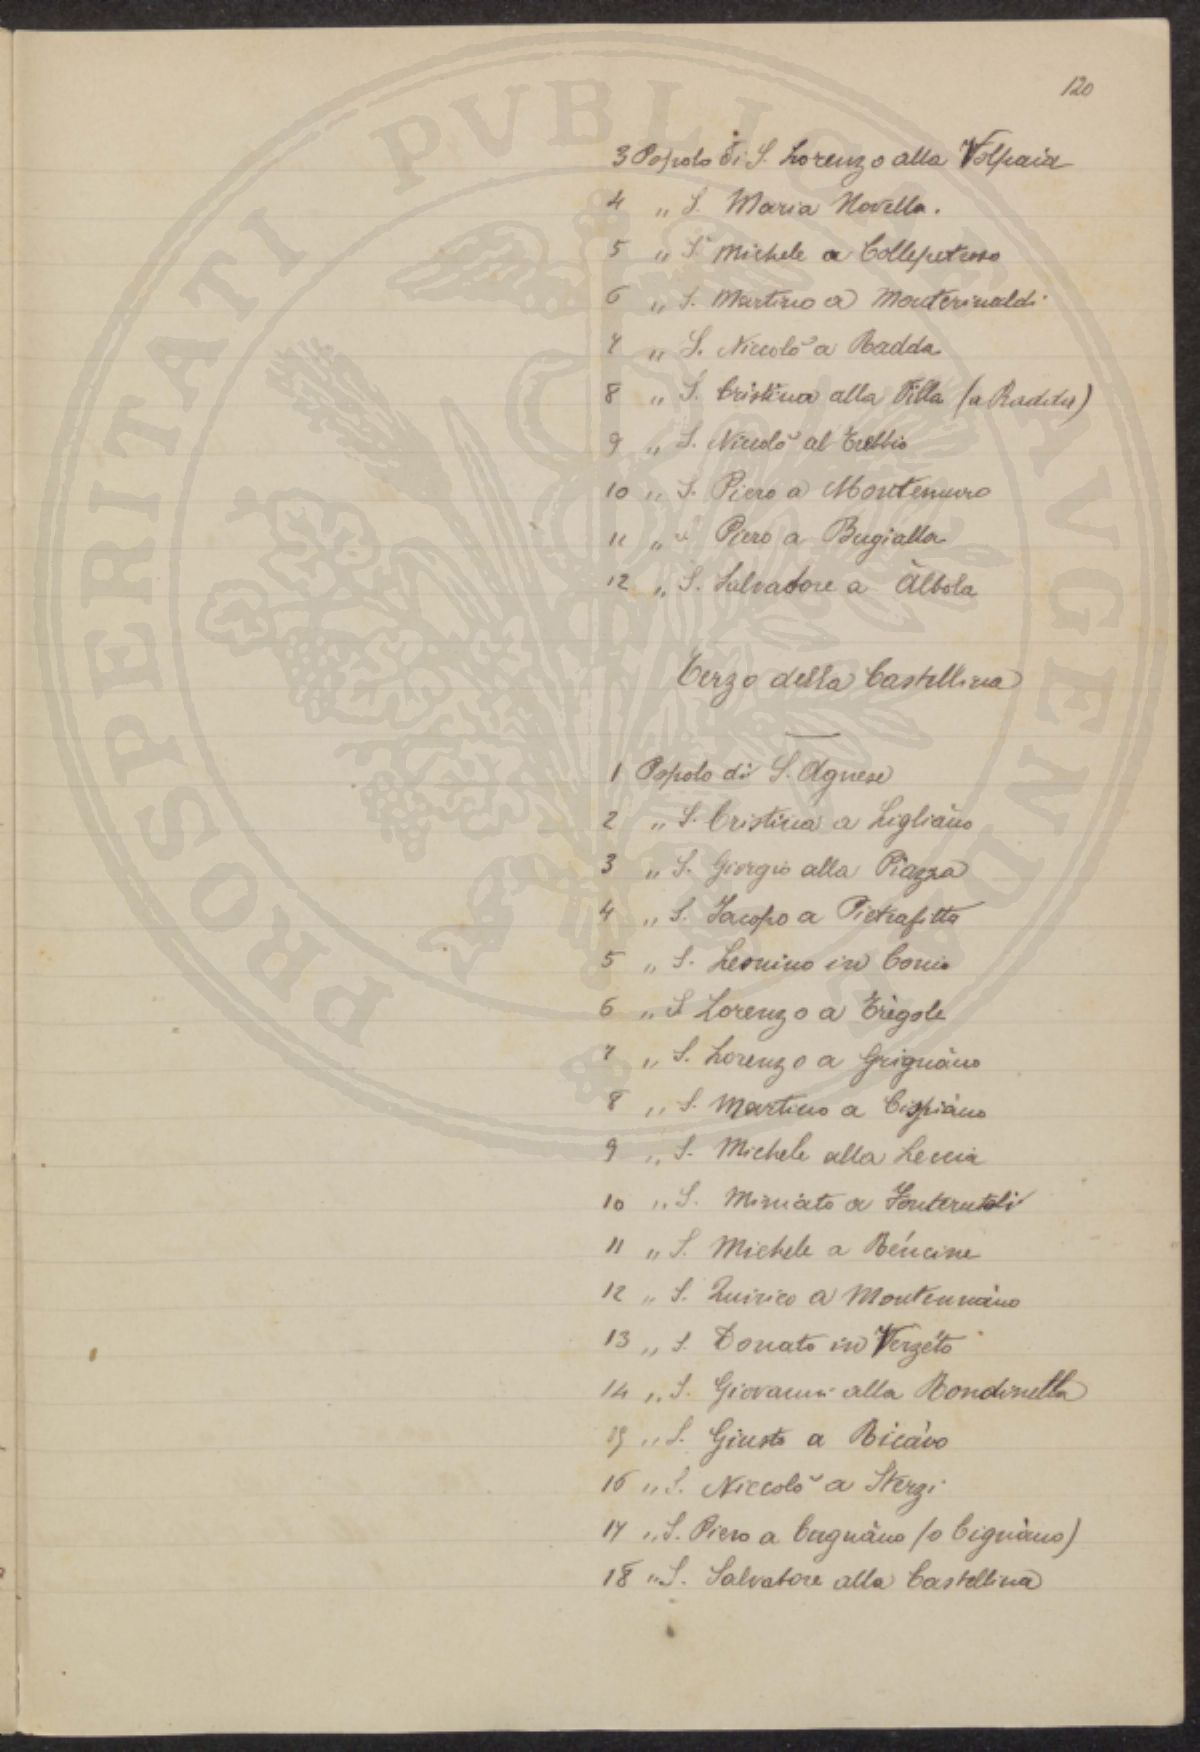 120
3 Popolo di S. Lorenzo alla Volpaia
4 „ S. Maria Novella.
5 „ S. Michele a Collepetroso
6 „ S. Martino a Monterinaldi
7 „ S. Niccolò a Radda
8 „ S. Cristina alla Pilla (a Radda)
9 „ S. Niccolò al Trebbio
10 „ S. Piero a Montemuro
11 „ S. Piero a Bugialla
12 „ S. Salvatore a Àlbola
Terzo della Castellina
1 Popolo di S. Agnese
2 „ S. Cristina a Ligliàno
3 „ S. Giorgio alla Piazza
4 „ S. Jacopo a Pietrafitta
5 „ S. Leonino in Conio
6 „ S. Lorenzo a Trègole
7 „ S. Lorenzo a Grignàno
8 „ S. Martino a Cispiàno
9 „ S. Michele alla Leccia
10 „ S. Miniato a Fonterutoli
11 „ S. Michele a Réncine
12 „ S. Quirico a Montennàno
13 „ S. Donato in Verzéto
14 „ S. Giovanni alla Rondinella
15 „ S. Giusto a Ricàvo
16 „ S. Niccolò a Sterzi
17 „ S. Piero a Cagnàno (o Cignàno)
18 „ S. Salvatore alla Castellina
PROSPERITATI PVBLICAE AVGENDAE